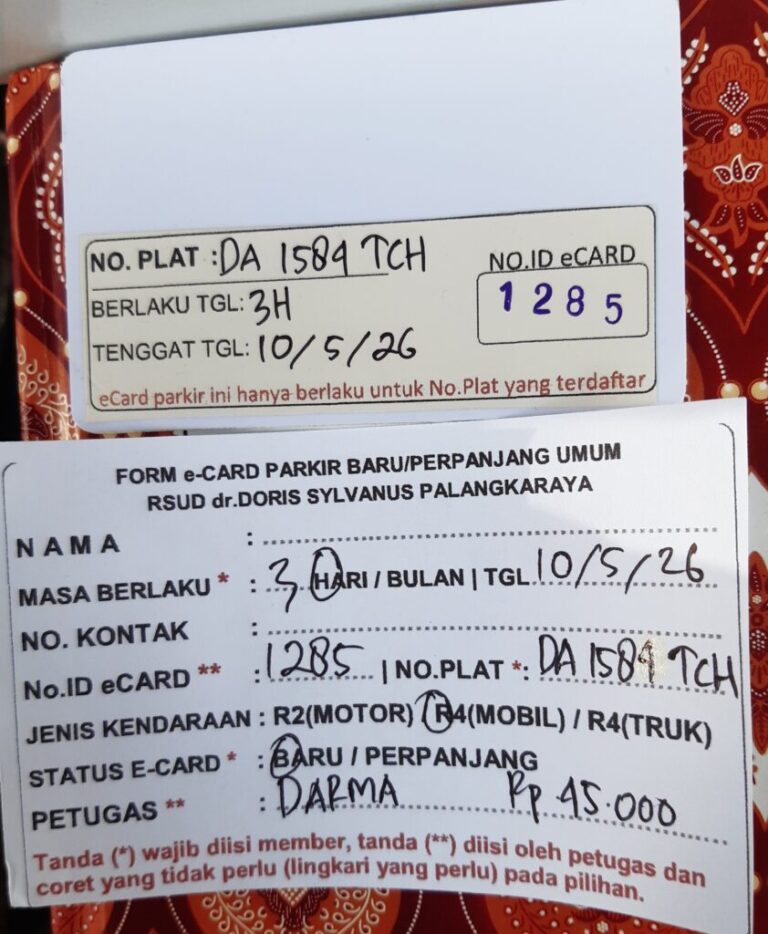 NO. PLAT : DA 1589 TCH
NO.ID eCARD
1285
BERLAKU TGL: 3H
TENGGAT TGL: 10/5/26
eCard parkir ini hanya berlaku untuk No.Plat yang terdaftar
FORM e-CARD PARKIR BARU/PERPANJANG UMUM
RSUD dr.DORIS SYLVANUS PALANGKARAYA
NAMA :
MASA BERLAKU * : 3 HARI / BULAN | TGL 10/5/26
NO. KONTAK :
No.ID eCARD ** : 1285 | NO.PLAT *: DA 1589 TCH
JENIS KENDARAAN : R2(MOTOR) / R4(MOBIL) / R4(TRUK)
STATUS E-CARD * : BARU / PERPANJANG
PETUGAS ** : DARMA Rp 45.000
Tanda (*) wajib diisi member, tanda (**) diisi oleh petugas dan
coret yang tidak perlu (lingkari yang perlu) pada pilihan.